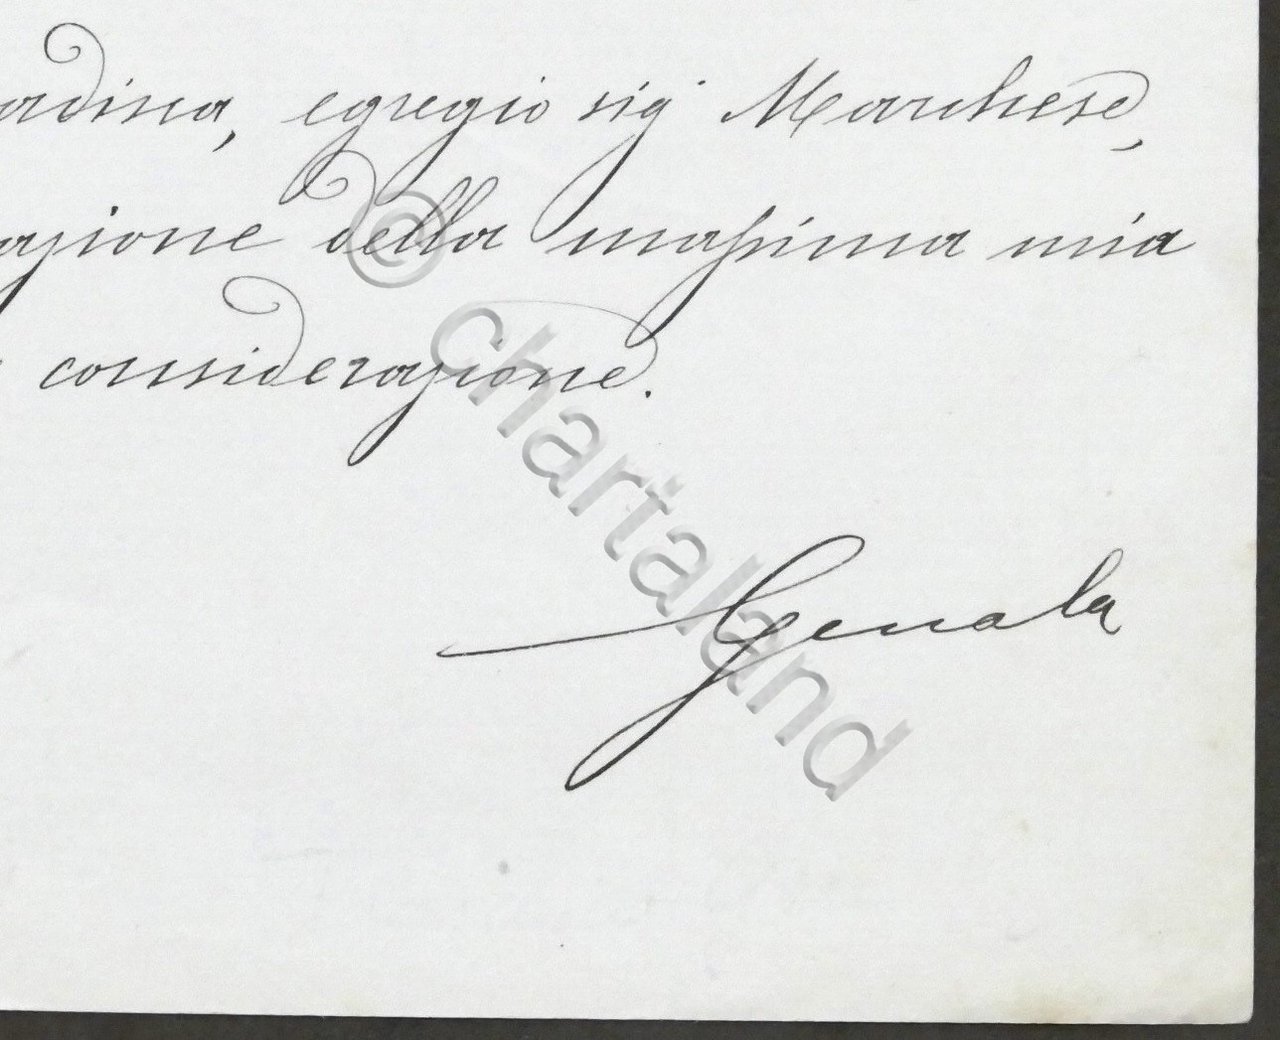 adina, egregio sig. Marchese,
azione della massima mia
considerazione.
Genala
© chartaland